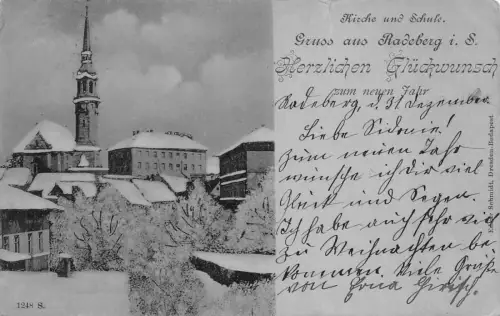 Kirche und Schule.
Gruss aus Radeberg i. S.
Herzlichen Glückwunsch
zum neuen Jahr
Radeberg, d. 31. Dezember.
Liebe Sidonie!
Zum neuen Jahr
wünsche ich dir viel
Glück und Segen.
Ich habe auch sehr viel
zu Weihnachten be-
kommen. Viele Grüße
von Erna Girisch.
1248 S.
Dresden-Budapest.